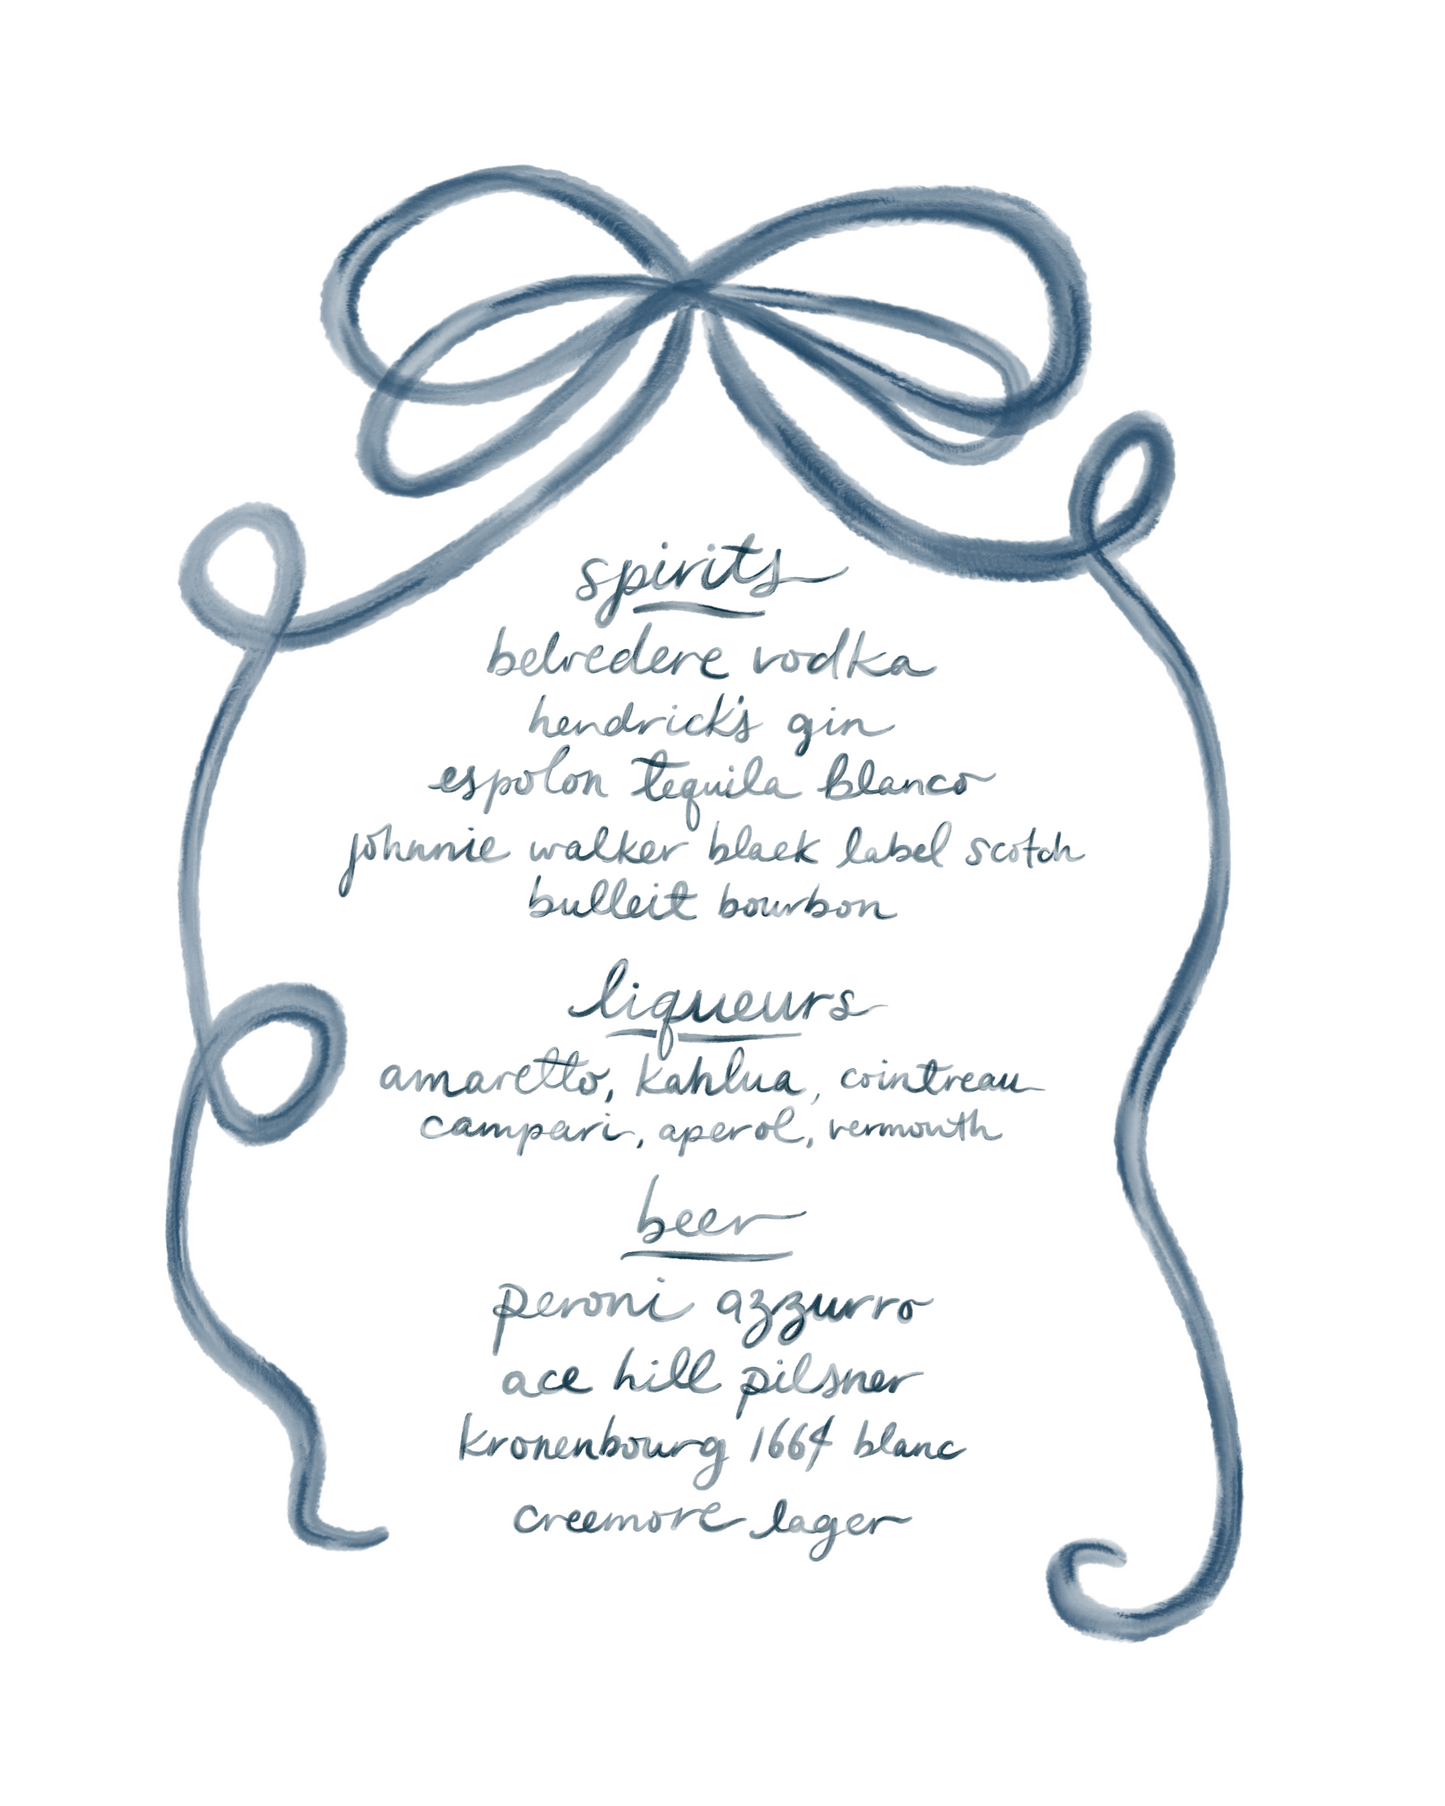 spirits
belvedere vodka
hendrick's gin
espolon tequila blanco
johnnie walker black label scotch
bulleit bourbon
liqueurs
amaretto, kahlua, cointreau
campari, aperol, vermouth
beer
peroni azzurro
ace hill pilsner
kronenbourg 1664 blanc
creemore lager